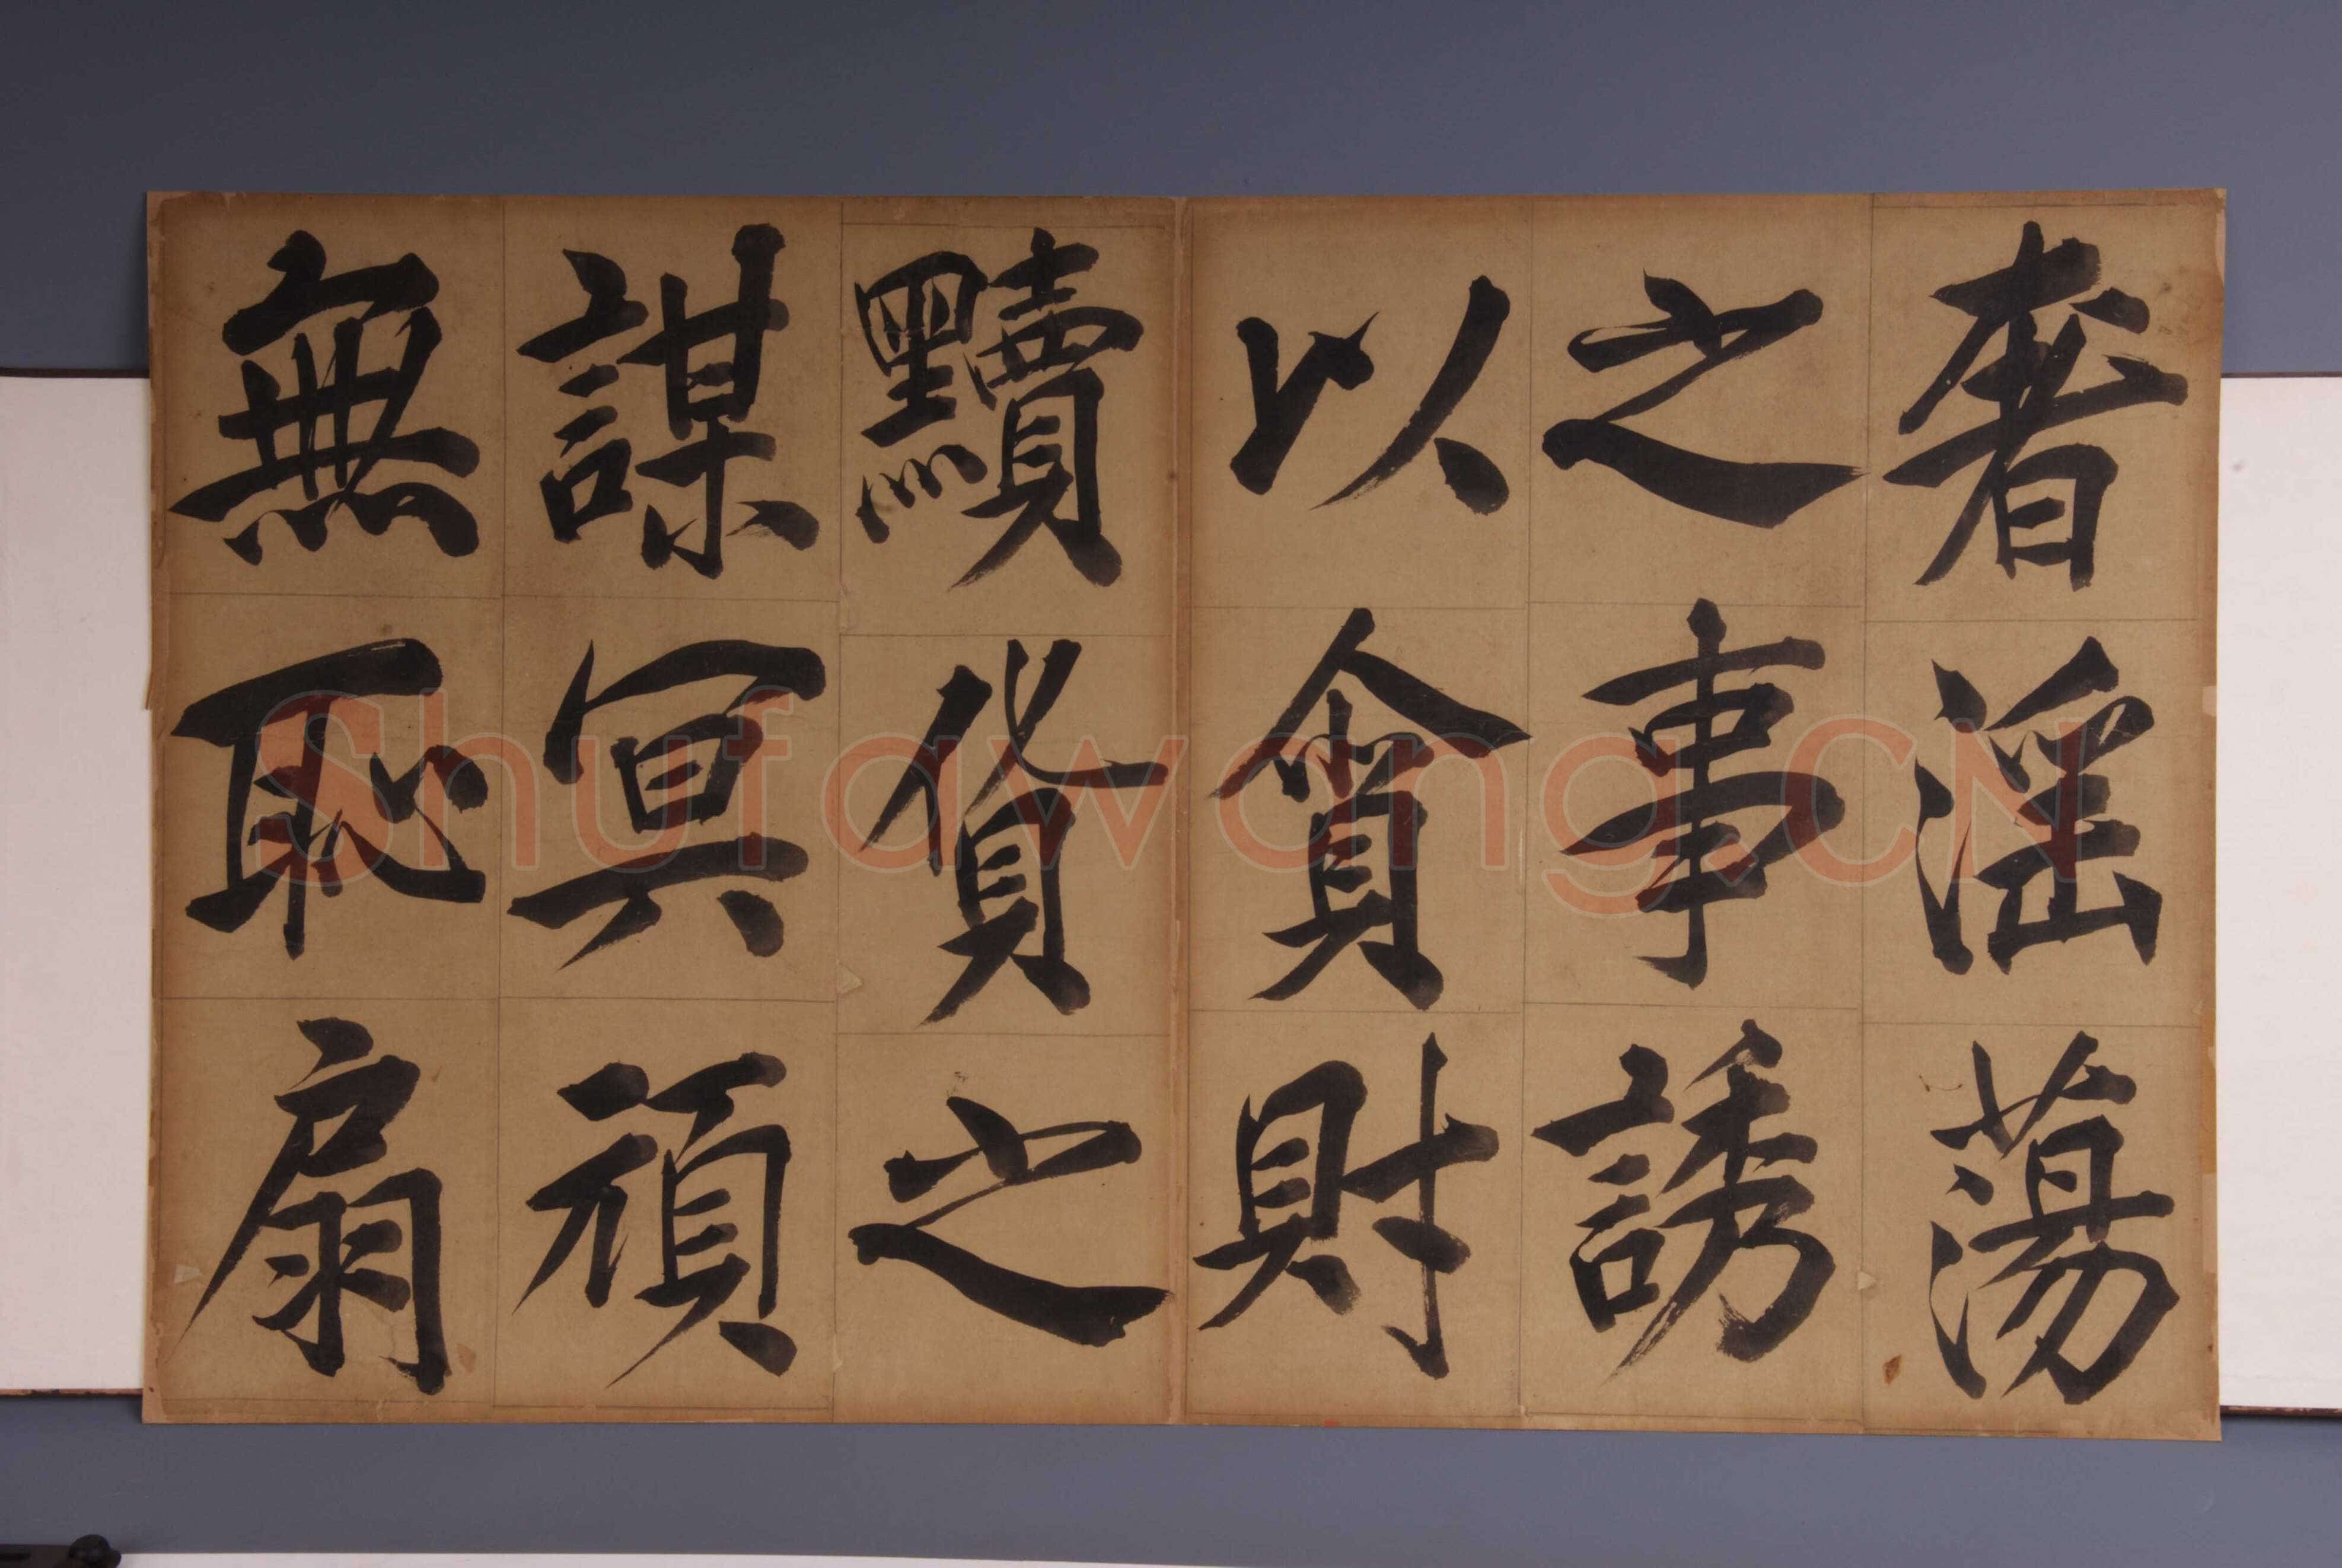 奢淫蕩
之事誘
以貪財
黷貨之
謀冥頑
無恥扇
Shufawang.CN